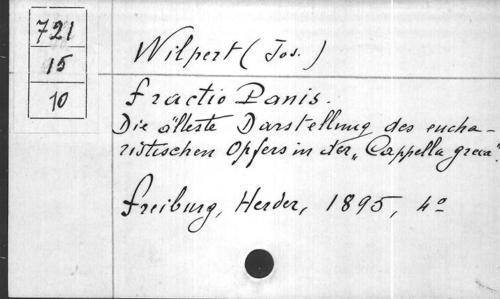 721
15
10
Wilpert (Jos.)
Fractio Panis.
Die älteste Darstellung des eucha-
ristischen Opfers in der „Cappella greca".
Freiburg, Herder, 1895, 4º